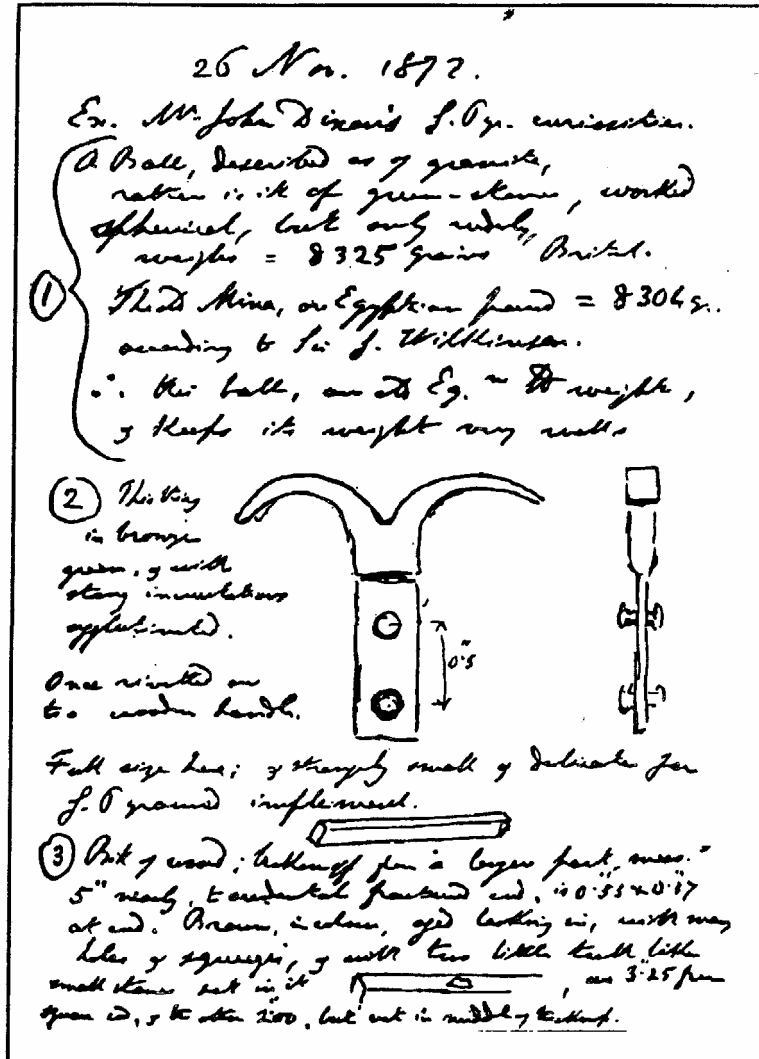 26 Nov. 1872.
Ex. Mr John Dixon's G. Pyr. curiosities.
① A Ball, described as of granite,
rather is it of green-stone, worked
spherical, but only rudely,
weighs = 8325 grains Brit.
Mina, or Egyptian pound = 8304 g.
according to Sir G. Wilkinson.
∴ this ball, Eg.n weight,
& keeps its weight very well
② This thing
in bronze
green, & with
strong incrustations
agglutinated.
Once rivetted on
to a wooden handle.
0".5
Full size here; & strangely small & delicate for
G. Pyramid implement.
③ Bit of wood; broken off from a larger part, meas.
5" nearly, to accidental fractured end, is
at end. Brown, in colour, aged looking, with many
holes & squeezes, & with two little teeth like
small stones set in it, one 3".25 from
square end, & the other 2".00, but set in middle of